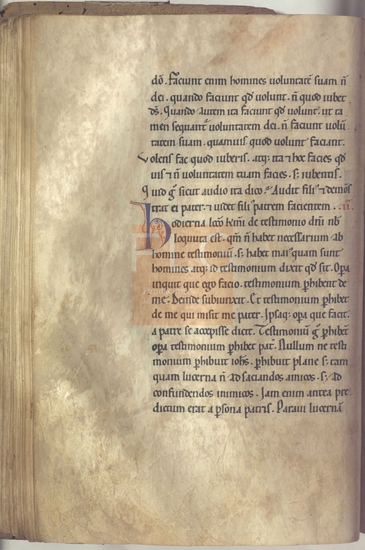 dõ. Faciunt enim homines voluntatẽ suam ñ
dei. quando faciunt qd̃ volunt. ñ quod iubet
ds̃. Quando autem ita faciunt qd̃ volunt. ut ta
men sequant᷑ voluntatem dei. ñ faciunt volũ
tatem suam. quamvis quod volunt faciant.
Volens fac quod iuberis. atq; ita & hoc facies qd̃
vis & ñ voluntatem tuam facies. s; iubentis.
Quid g̃ sicut audio ita dico. Audit fili᷒ & demõs
trat ei pater. & videt fili᷒ patrem facientem.
Hodierna lectio de testimonio dñi nr̃i
loquuta est. qm̃ ñ habet necessarium ab
homine testimoniũ. s; habet mai᷒ quam sunt
homines atq; id testimonium dixit qd̃ sit. Opa
inquit que ego facio. testimonium phibent de
me. Deinde subiunxit. Et testimonium phibet
de me qui misit me pater. Ipsaq; opa que facit.
a patre se accepisse dicit. Testimoniũ g̃ phibẽt
opa testimonium phibet pat᷑. Nullum ne testi
monium phibuit iohs̃. phibuit plane s; tam
quam lucerna ñ ad saciandos amicos. s; ad
confundendos inimicos. Iam enim antea pre
dictum erat a psona patris. Paravi lucernã